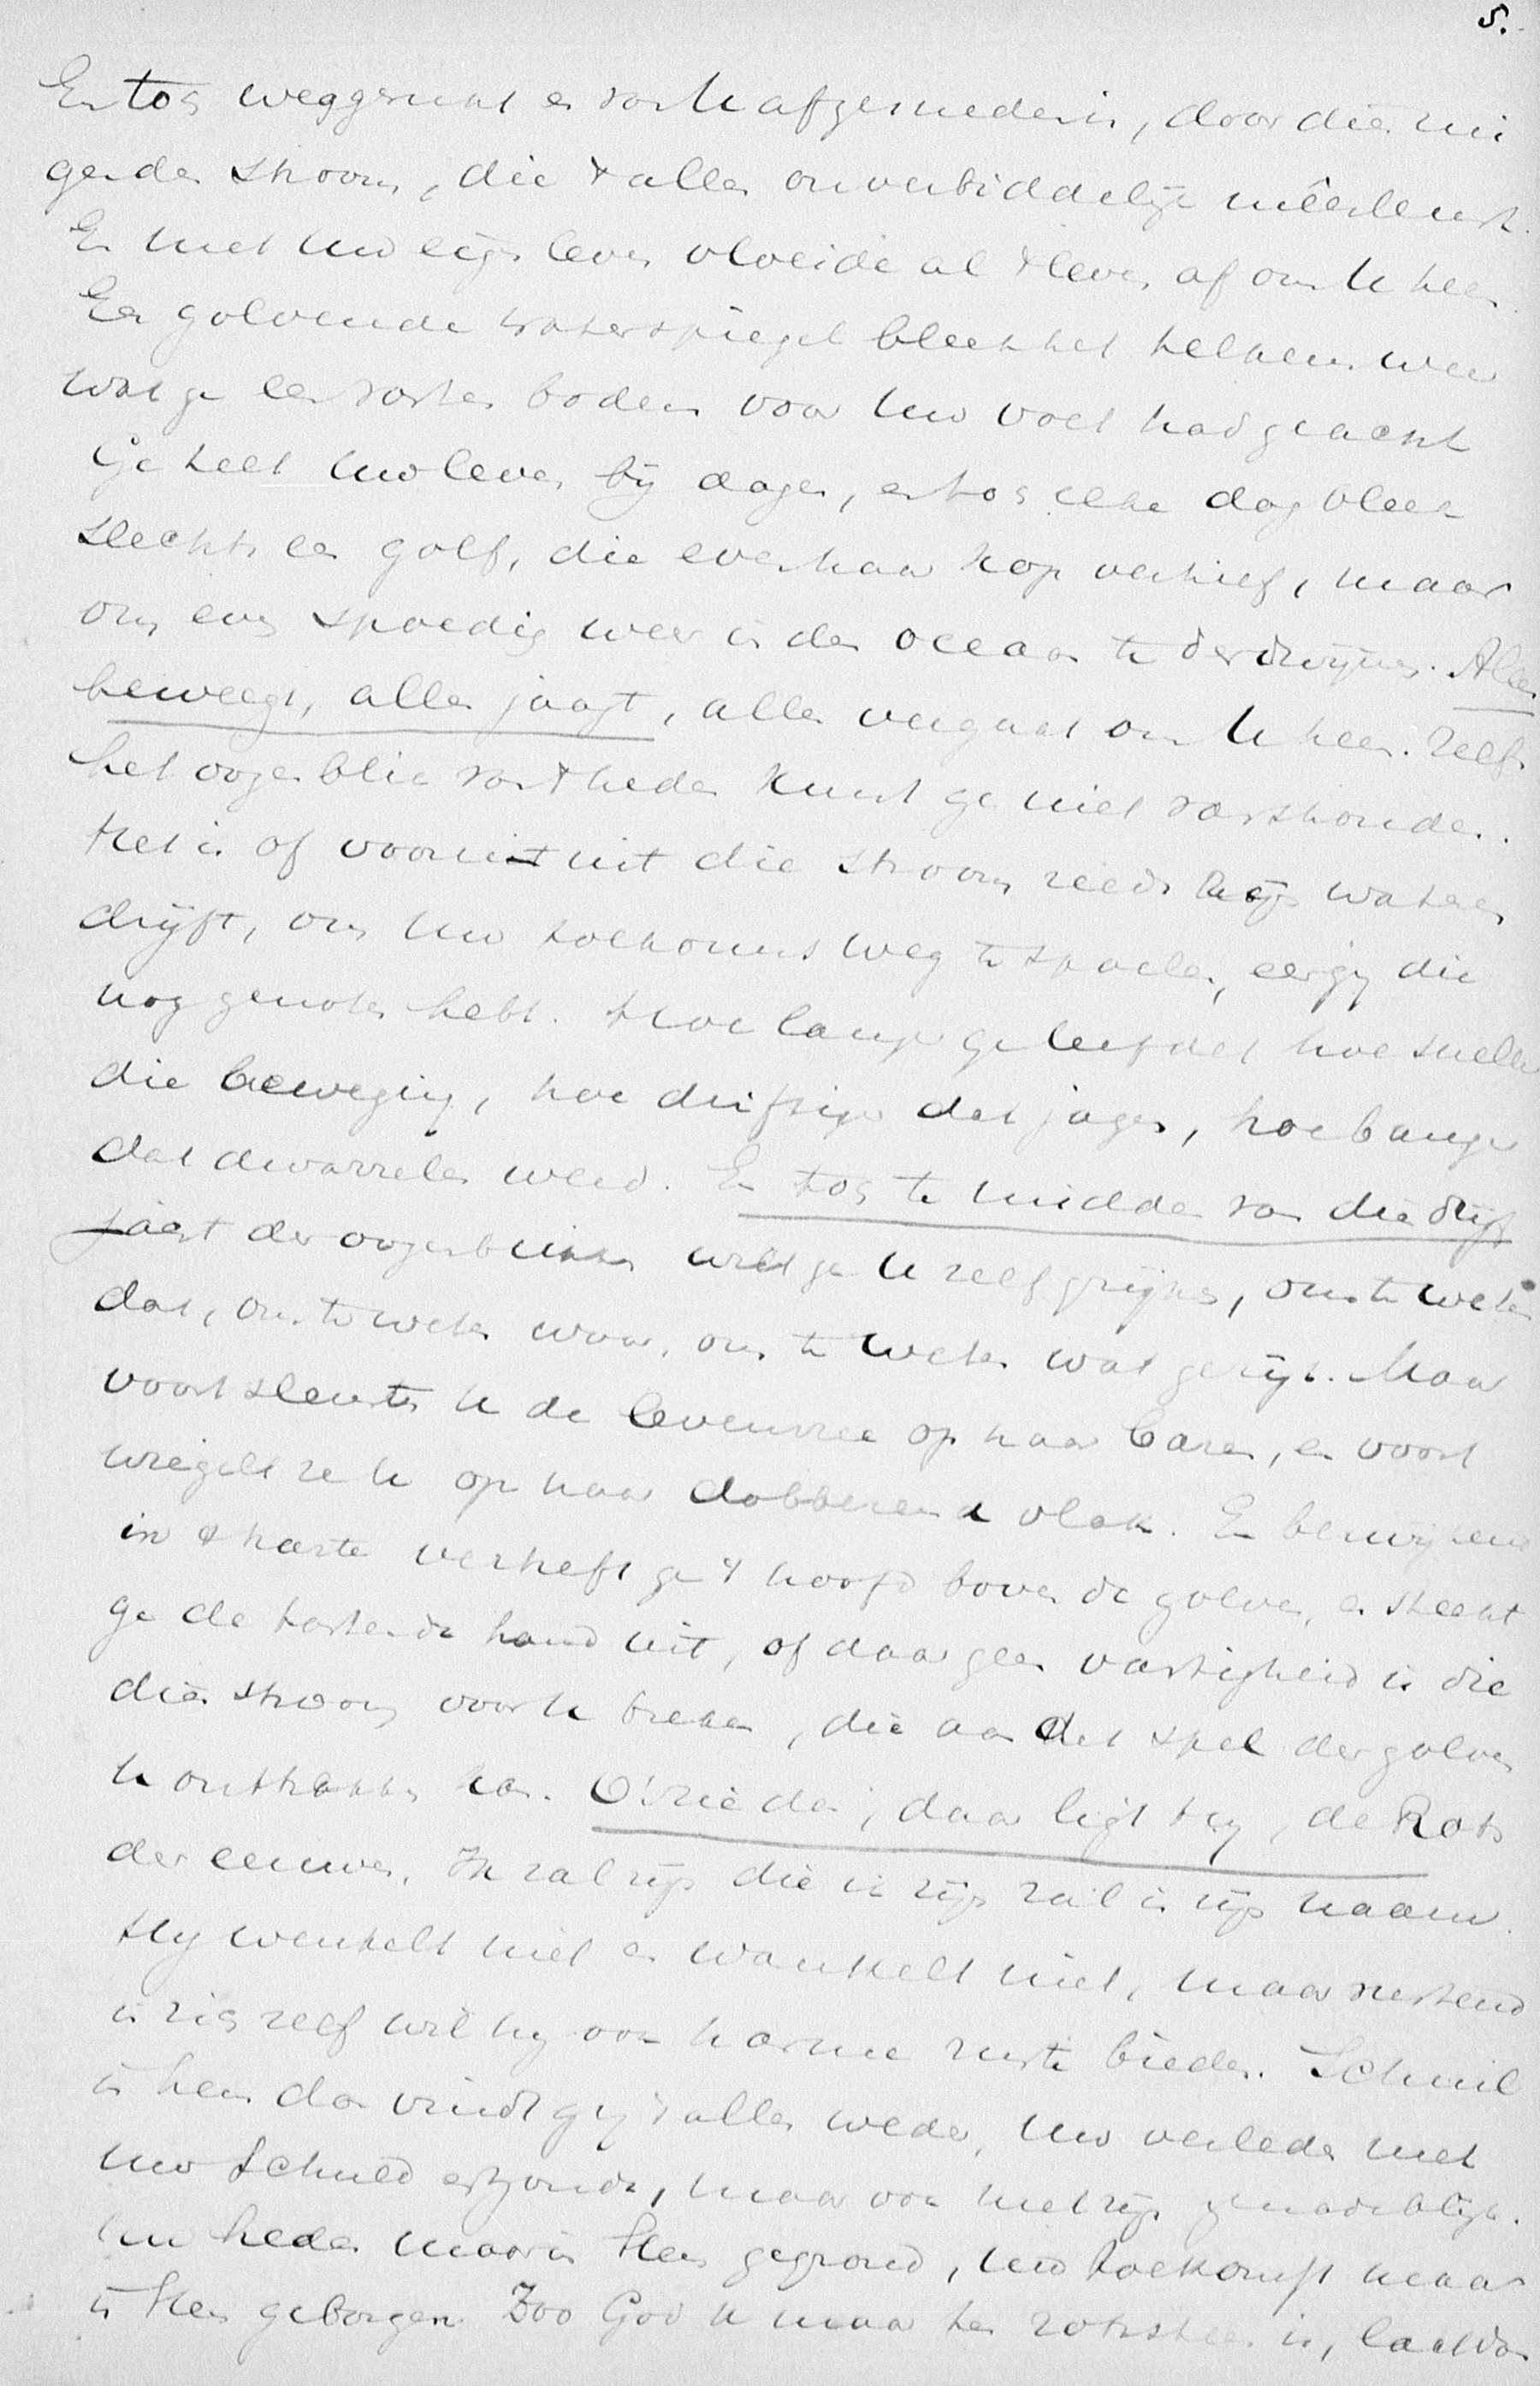 5.
En tog weggerukt en van U afgesneden is, door dien zui
genden stroom, die 't alles onverbiddelijk meêsleurt.
En met uw eigen leven vloeide al 't leven af om U heen
Een golvende waterspiegel bleek het telkens weer
wat ge een vasten bodem voor uw voet had geacht
Ge telt uw leven bij dagen, en tog elke dag bleek
slechts een golf, die even haar kop verhief, maar
om even spoedig weer in den oceaan te verdwijnen. Alles
beweegt, alles jaagt, alles vergaat om U heen. Zelfs
het oogenblik van 't heden kunt ge niet vasthouden.
Het is of vooruit uit die stroom reeds zijn wateren
drijft, om uw toekomst weg te spoelen, eer gij die
nog genoten hebt. Hoe langer ge leefdet hoe sneller
die beweging, hoe driftiger dat jagen, hoe banger
dat dwarrelen werd. En tog te midden van die drijf
jacht der oogenblikken wilt ge U zelf grijpen, om te weten
dat, om te weten waar, om te weten wat ge zijt. Maar
voort sleurt U de levenszee op haar baren, en voort
wiegelt ze U op haar dobberend vlak. En bezwijkend
in 't harte verheft ge 't hoofd boven de golven, en steekt
ge de tastende hand uit, of daar geen vastigheid is die
dien stroom voor U breken, die aan dat spel der golven
U onttrekken kan. O! zie dan, daar ligt hij, de Rots
der eeuwen. Ik zal zijn die ik zijn zal is zijn naam.
Hij wentelt niet en wankelt niet, maar rustend
in zig zelf wil hij ook harme ruste bieden. Schuil
in hem dan vindt gij 't alles weder, uw verleden met
uw schuld en zonde, maar ook met zijn genadeblijk.
Uw heden maar in Hem gegrond, uw toekomst maar
in Hem geborgen. Zoo God U maar ten rotssteen is, laat dan